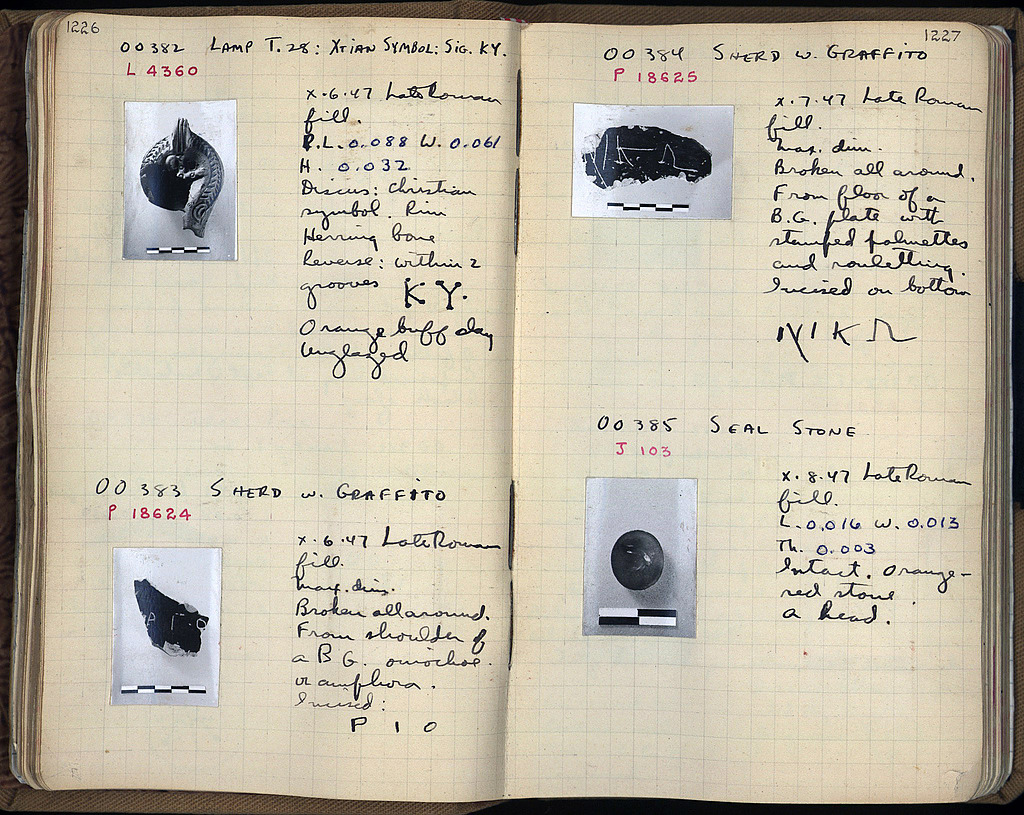 1226
OO 382 LAMP T. 28: XTIAN SYMBOL: SIG. KY.
L 4360
x.6.47 Late Roman
fill.
P.L. 0.088 W. 0.061
H. 0.032
Discus: Christian
symbol. Rim
Herring bone
Reverse: within 2
grooves KY.
Orange buff clay
Unglazed
OO 383 SHERD W. GRAFFITO
P 18624
x.6.47 Late Roman
fill.
Max. dim.
Broken all around.
From shoulder of
a B G. oinochoe
or amphora.
Incised:
P I O
1227
OO 384 SHERD W. GRAFFITO
P 18625
x.7.47 Late Roman
fill.
Max. dim.
Broken all around.
From floor of a
B.G. plate with
stamped palmettes
and rouletting.
Incised on bottom
ΝΙΚΩ
OO 385 SEAL STONE
J 103
x.8.47 Late Roman
fill.
L. 0.016 W. 0.013
Th. 0.003
Intact. Orange-
red stone.
A head.